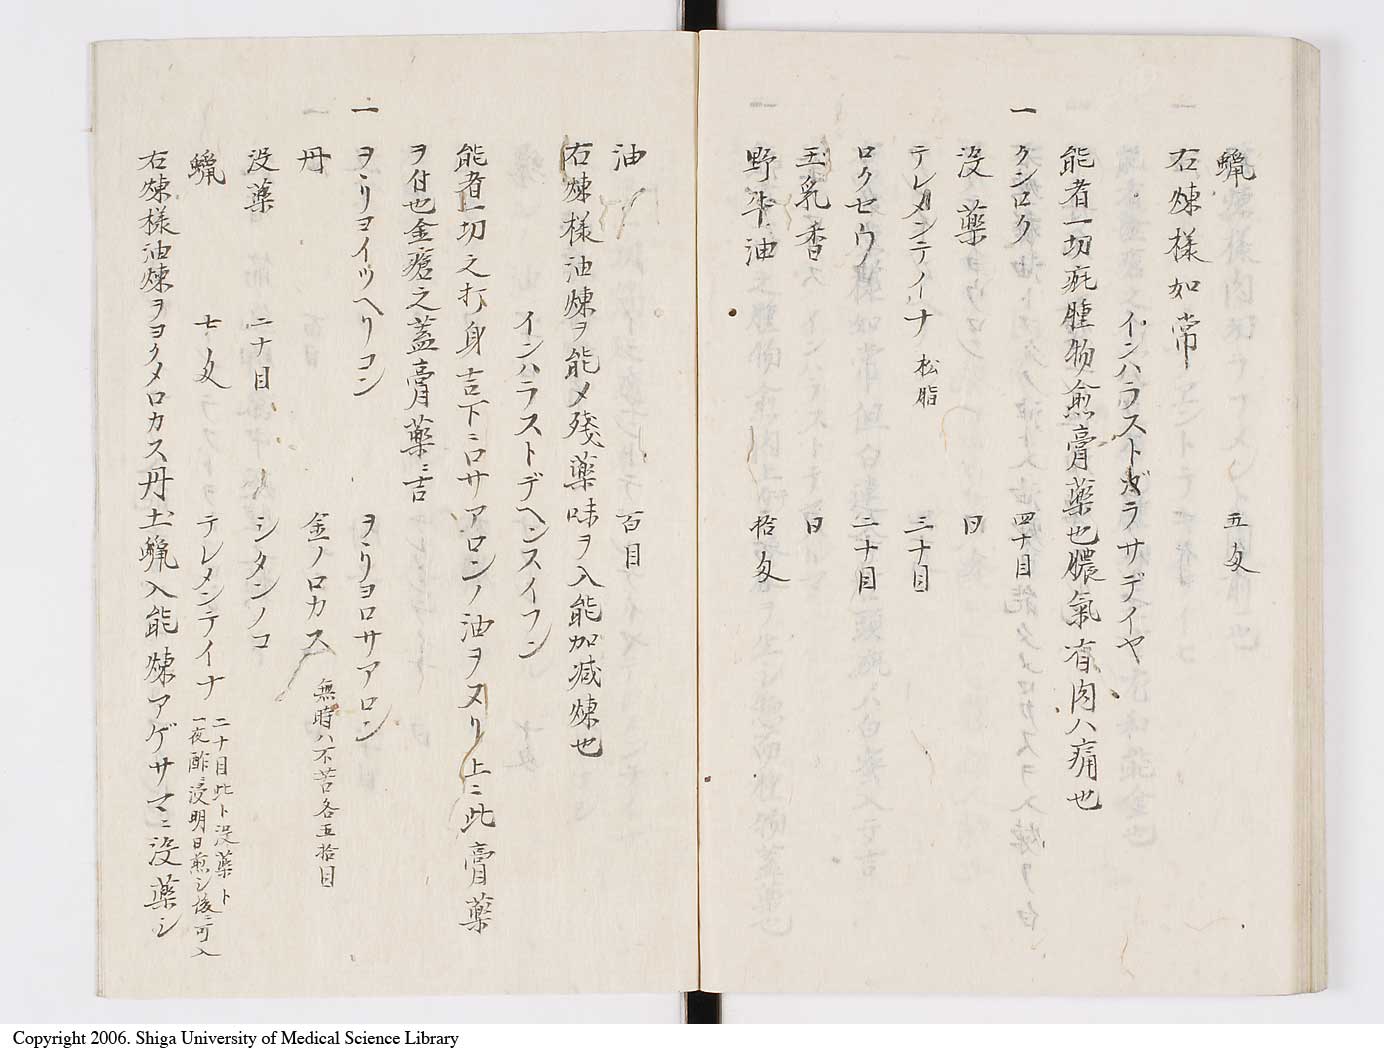 蝋 五匁
右煉様如常
インハラストガラサデイヤ
能者一切疵腫物愈膏薬也膿氣有肉ハ痛也
一 クンロク 四十目
没薬 日
テレメンテイナ 松脂 三十目
ロクセウノ 二十目
玉乳香 日
野牛油 拾匁
油 百目
右煉様油煉ヲ能〆殘薬味ヲ入能加减煉也
インハラストデヘンスイフン
能者一切之打身吉下ニロサアロンノ油ヲヌリ上ニ此膏薬
ヲ付也金瘡之蓋膏薬ニ吉
一 ヲヽリヨイツヘリコン ヲヽリヨロサアロン
丹 金ノロカス 無時ハ不苦各五拾目
没薬 二十目 シタンノコ
蝋 七匁 テレメンテイナ 二十目此ト没薬ト
一夜酢ニ浸明日煎シ後ニ可入
右煉様油煉ヲヨクメロカス丹土蝋入能煉アゲサマニ没薬シ
Copyright 2006. Shiga University of Medical Science Library